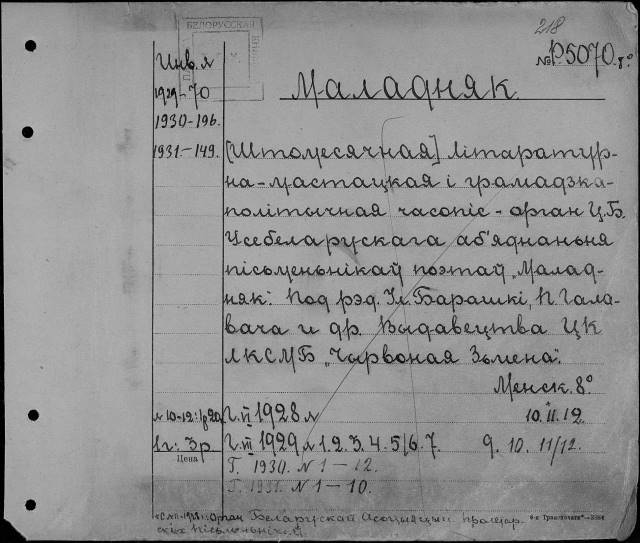 218
БЕЛОРУССКАЯ
№ Р5070. 8°
Инв. №
1929-70
1930-196.
1931-149.
Маладняк
[Штомесячная] літаратур-
на-мастацкая і грамадзка-
політычная часопіс - орган Ц.Б.
Усебеларускага аб'яднаньня
пісьменьнікаў поэтаў „Малад-
няк". Под рэд. Іл. Барашкі, П. Гала-
вача и др. Выдавецтва ЦК
ЛКСМБ „Чырвоная Зьмена".
Менск. 8°
Г. VI 1928 № 10. 11. 12.
1 г: 3р
Цена
Г. VII 1929 № 1. 2. 3. 4. 5/6. 7. 9. 10. 11/12.
Г. 1930. N 1-12.
Г. 1931. N 1-10.
Орган Беларускай Асоцыяцыи пролетар.
скіх пісьменьнікаў